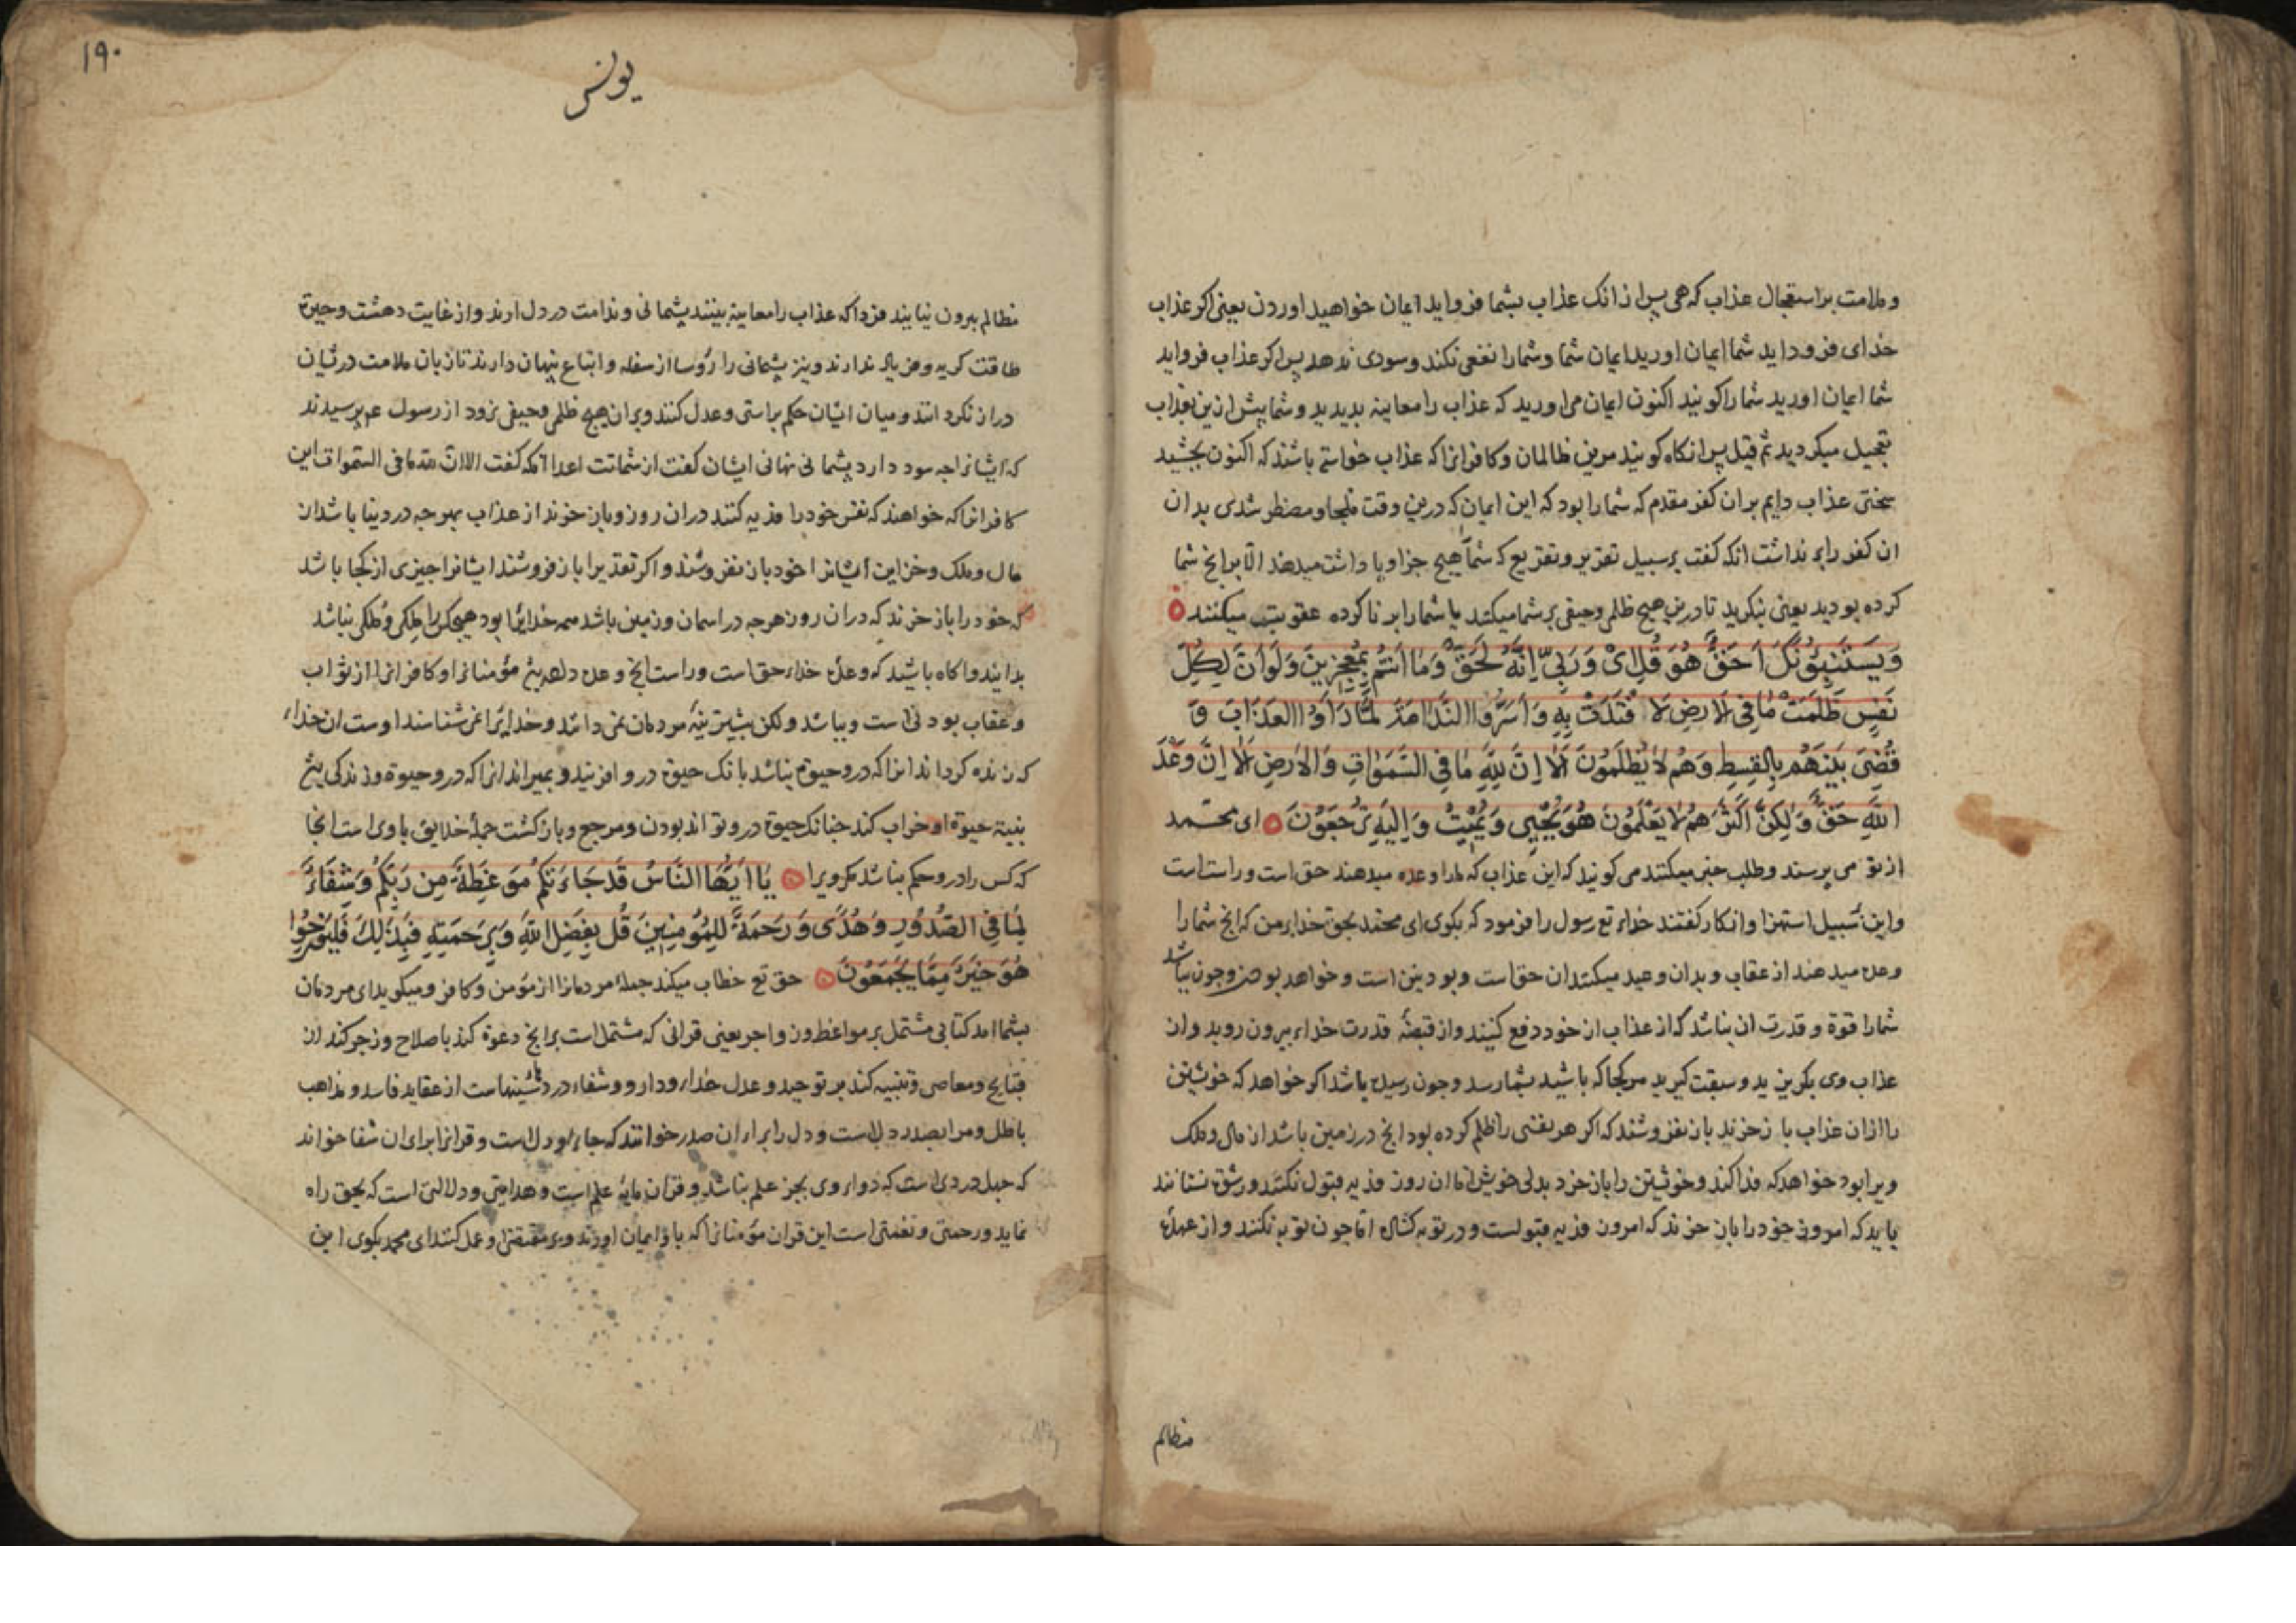 وملامت بر استقبال عذاب که هی پس از انک عذاب بشما فرو اید ایمان خواهید اوردن یعنی اکر عذاب
خدای فرود اید شما ایمان اورید ایمان شما وشمارا نفعی نکند وسودی ندهد پس اکر عذاب فرو اید
شما ایمان اورید شمارا کویند اکنون ایمان می اورید که عذاب را معاینه بدیدید وشما پیش ازین بعذاب
تعجیل میکردید ثم قیل پس انکاه کویند مرین ظالمان وکافرانرا که عذاب خواسته باشند که اکنون بچشید
سختی عذاب دایم بران کفر مقدم که شمارا بود که این ایمان که درین وقت ملجا ومضطر شدی بدان
ان کفر رابر نداشت انکه کفت بر سبیل تقریر وتقریع که شما هیچ جزا وپا داشت میدهند الا برانچ شما
کرده بودید یعنی بنکرید تا درین هیچ ظلمی وحیفی بر شما میکند یا شمارا بر نا کرده عقوبت میکنند
وَیَسْتَنْبِئُونَكَ اَحَقٌّ هُوَ قُلْ اِیْ وَرَبِّی اِنَّهُ لَحَقٌّ وَمَا اَنْتُمْ بِمُعْجِزِینَ وَلَوْ اَنَّ لِكُلِّ
نَفْسٍ ظَلَمَتْ مَا فِی الْاَرْضِ لَا فْتَدَتْ بِهِ وَاَسَرُّوا النَّدَامَةَ لَمَّا رَاَوُا الْعَذَابَ وَ
قُضِیَ بَیْنَهُمْ بِالْقِسْطِ وَهُمْ لَا یُظْلَمُونَ اَلَا اِنَّ لِلّٰهِ مَا فِی السَّمٰوَاتِ وَالْاَرْضِ اَلَا اِنَّ وَعْدَ
اللّٰهِ حَقٌّ وَلٰكِنَّ اَكْثَرَهُمْ لَا یَعْلَمُونَ هُوَ یُحْیِی وَیُمِیتُ وَاِلَیْهِ تُرْجَعُونَ ای محمد
از تو می پرسند وطلب خبر میکنند می کویند که این عذاب که مارا وعده میدهند حق است وراست است
واین سبیل استهزا وانکار کفتند خدای تع رسول را فرمود که بکوی ای محمد بحق خدای من که انچ شمارا
وعده میدهند از عقاب وبدان وعید میکنند ان حق است وبودنی است وخواهد بودن وچون بیاشد
شمارا قوة وقدرت ان نباشد که از عذاب از خود دفع کنید واز قبضۀ قدرت خدای بیرون روید وان
عذاب وی بکریزید وسبقت کیرید هر کجا که باشید بشما رسد وچون رسیده باشد اکر خواهد که خویشتن
را ازان عذاب باز خرند بان نفروشند که اکر هر نفسی را ظلم کرده بود انچ در زمین باشد از مال وملک
ویرا بود خواهد که فدا کند وخویشتن را باز خرد بدلی خویش اما ان روز فدیه قبول نکنند ورشوة نستانند
باید که امروز خود را باز خرند که امروز فدیه قبولست ودر توبه کشاده اما چون توبه نکنند واز عهدۀ
مظالم
۱۹۰
یونس
مظالم بیرون نیایند فردا که عذاب را معاینه بینند پشمانی وندامت در دل ارند واز غایت دهشت وحیرة
طاقت کریه وفریاد ندارند ونیز پشمانی را رؤسا از سفله واتباع پنهان دارند تا زبان ملامت دریشان
دراز نکردانند ومیان ایشان حکم براستی وعدل کنند وبران هیچ ظلمی وحیفی نرود از رسول عم پرسیدند
که ایشانرا چه سود دارد پشمانی نهانی ایشان کفت از شماتت اعدا انکه کفت الا ان لله ما فی السموات این
کافرانرا که خواهند که نفس خود را فدیه کنند دران روز وباز خرند از عذاب بهر چه در دنیا باشد از
مال وملک وخزاین ایشانرا خود بان نفروشند واکر تقدیرا باز فروشند ایشانرا چیزی از کجا باشد
که خود را باز خرند که دران روز هرچه در اسمان وزمین باشد همه خدایرا بود هیچ کس را ملکی وملکی نباشد
بدانید واکاه باشید که وعدۀ خدای حق است وراست انچ وعده دهد مؤمنانرا وکافرانرا از ثواب
وعقاب بودنی است وبیاشد ولکن بیشترینۀ مردمان نمی دانند وخدایرا نمی شناسند اوست ان خدای
که زنده کرداند انرا که درو حیوة نباشد بانک حیوة درو افریند وبمیراند انرا که درو حیوة وزندکی
بنیة حیوة او خراب کند چنانک حیوة درو نتواند بودن ومرجع وباز کشت جملۀ خلایق با وی است انجا
که کس را درو حکم نباشد مکر ویرا یَا اَیُّهَا النَّاسُ قَدْ جَاءَتْكُمْ مَوْعِظَةٌ مِنْ رَبِّكُمْ وَشِفَاءٌ
لِمَا فِی الصُّدُورِ وَهُدًی وَرَحْمَةٌ لِلْمُؤْمِنِینَ قُلْ بِفَضْلِ اللّٰهِ وَبِرَحْمَتِهِ فَبِذٰلِكَ فَلْیَفْرَحُوا
هُوَ خَیْرٌ مِمَّا یَجْمَعُونَ حق تع خطاب میکند جملۀ مردمانرا از مؤمن وکافر ومیکوید ای مردمان
بشما امد کتابی مشتمل بر مواعظ وزواجر یعنی قرانی که مشتمل است برانچ دعوة کند با صلاح وزجر کند از
قبایح ومعاصی وتنبیه کند بر توحید وعدل خدای ودارو وشفاء درد سینهاست از عقاید فاسد ومذاهب
باطل ومراد بصدر دل است ودل را برای ان صدر خوانند که جای او دل است وقرانرا برای ان شفا خواند
که جهل دردی است که دوای وی بجز علم نباشد وقران مایۀ علم است وهدایتی ودلالتی است که بحق راه
نماید ورحمتی ونعمتی است این قران مؤمنانرا که باو ایمان اورند وبر مقتضی او عمل کنند ای محمد بکوی این